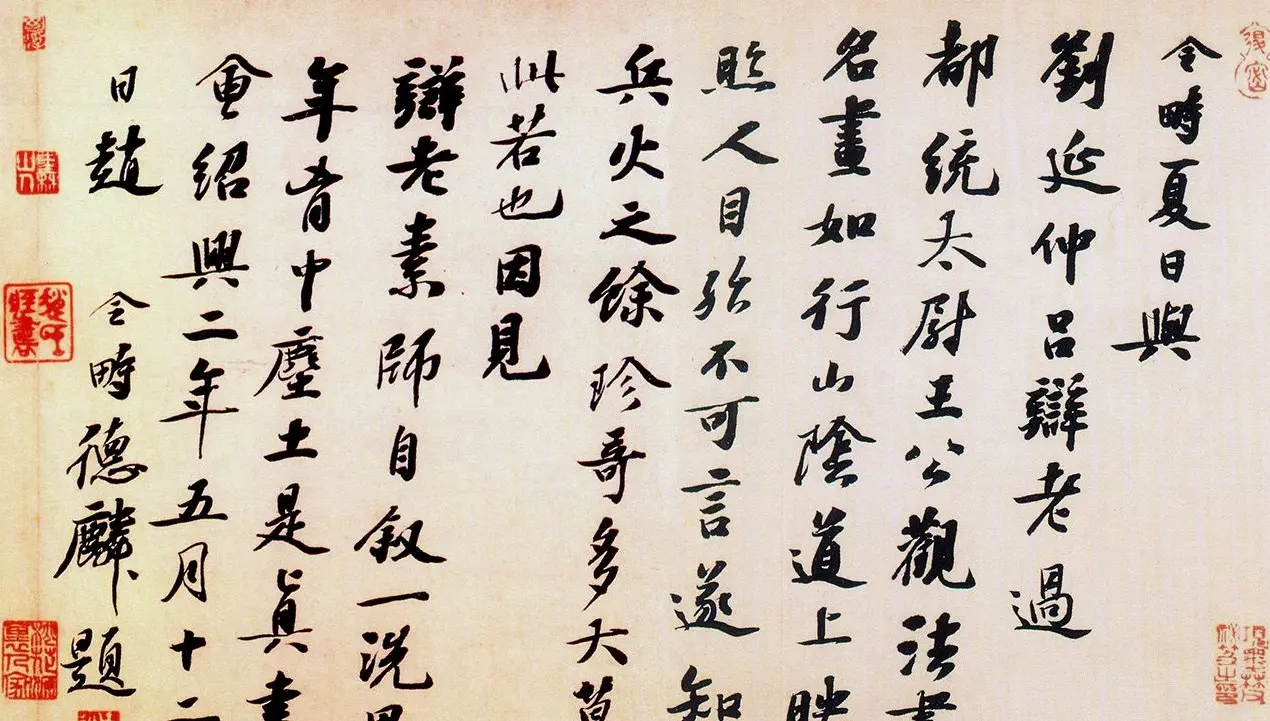 令畤夏日與
劉延仲呂辯老過
都統太尉王公觀法書
名畫如行山陰道上映
照人目殆不可言遂知
兵火之餘珍哥多大莫
此若也因見
辯老素師自叙一洗
年胷中塵土是真書
會紹興二年五月十二
日趙 令畤德麟題